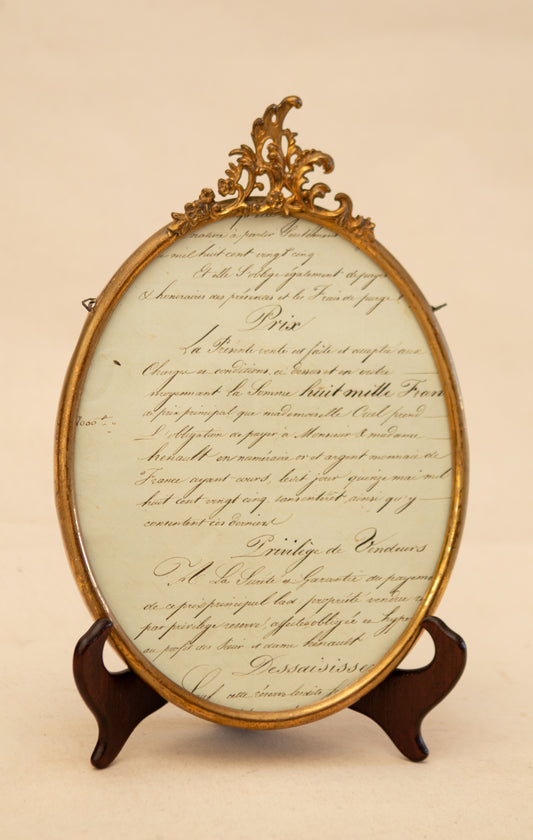 à partir
mil huit cent vingt cinq
Et elle s'oblige également de payer
& honoraires des présentes et les frais de purge
Prix
La Présente vente est faite et acceptée aux
Charges et conditions, ci dessus et en outre
moyennant la Somme huit mille Fran
de prix principal que mademoiselle prend
L'obligation de payer à Monsieur & madame
henault en numéraire or et argent monnaie de
France ayant cours, le jour quinze mai mil
huit cent vingt cinq, sans intérêt, ainsi qu'y
consentent ces derniers
Privilège de Vendeurs
A La Sureté et Garantie du payeme
de ce prix principal la propriété vendue
par privilège reservé, affectée obligée et hypo
au profit des Sieur et dame henault
Dessaisisse
cette